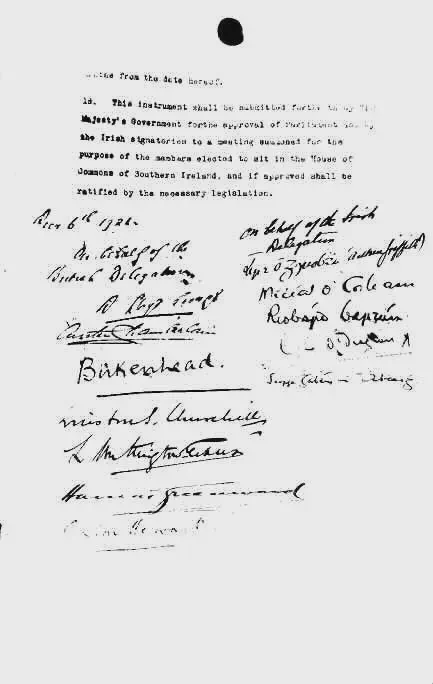 from the date hereof.
18. This instrument shall be submitted forthwith by His
Majesty's Government for the approval of Parliament and by
the Irish signatories to a meeting summoned for the
purpose of the members elected to sit in the House of
Commons of Southern Ireland, and if approved shall be
ratified by the necessary legislation.
Decr 6th 1921.
On behalf of the
British Delegation
D Lloyd George
Austen Chamberlain
Birkenhead.
Winston S. Churchill
L Worthington-Evans
Hamar Greenwood
Gordon Hewart
On behalf of the Irish
Delegation
Art Ó Gríobhtha (Arthur Griffith)
Miceál Ó Coileain
Riobárd Bartún